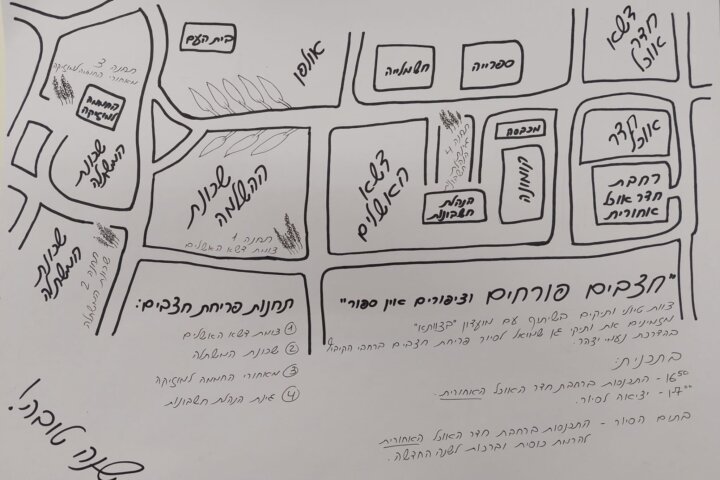 תחנה 3
מאחורי החממה למוזיקה
החממה
למוזיקה
שכונת
המשתלה
בית העם
אולפן
חשמלייה
ספרייה
דשא
חדר
אוכל
שכונת
ההשלמה
תחנה 1
צומת דשא האשלים
דשא
האשלים
תחנה 4
הנהלת
חשבונות
מכבסה
חדר
אוכל
רחבת
חדר אוכל
אחורית
שכונת
המשתלה
תחנה 2
שכונת המשתלה
תחנות פריחת חצבים:
1 צומת דשא האשלים
2 שכונת המשתלה
3 מאחורי החממה למוזיקה
4 גינת הנהלת חשבונות
"חצבים פורחים וציפורים אין ספור"
צוות טיולי ותיקים בשיתוף עם מועדון "בצוותא"
מזמינים את ותיקי גן שמואל לסיור פריחת חצבים ברחבי הקיבוץ
בהדרכת נעמי יצהר.
בתכנית:
16:50 - התכנסות ברחבת חדר האוכל האחורית.
17:00 - יציאה לסיור.
בתום הסיור - התכנסות ברחבת חדר האוכל האחורית
להרמת כוסית וברכות לשנה החדשה.
שנה טובה!